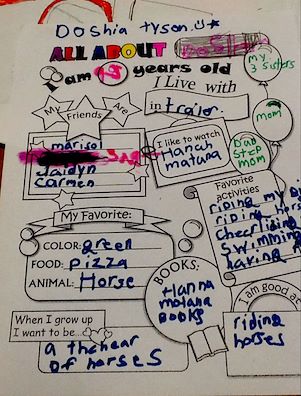 Doshia tyson
ALL ABOUT
I am years old
I Live with
in traler.
my
3 sisters
mom
My Friends Are
marisol
Jaidyn
Carmen
I like to watch
Hanah
matana
Step
mom
Favorite
activities
riding my
riding
cheerliding
Swimming
having
My Favorite:
COLOR: green
FOOD: pizza
ANIMAL: Horse
BOOKS:
Hanna
motana
Books
I am good a
riding
horses
When I grow up
I want to be...
a
of horses